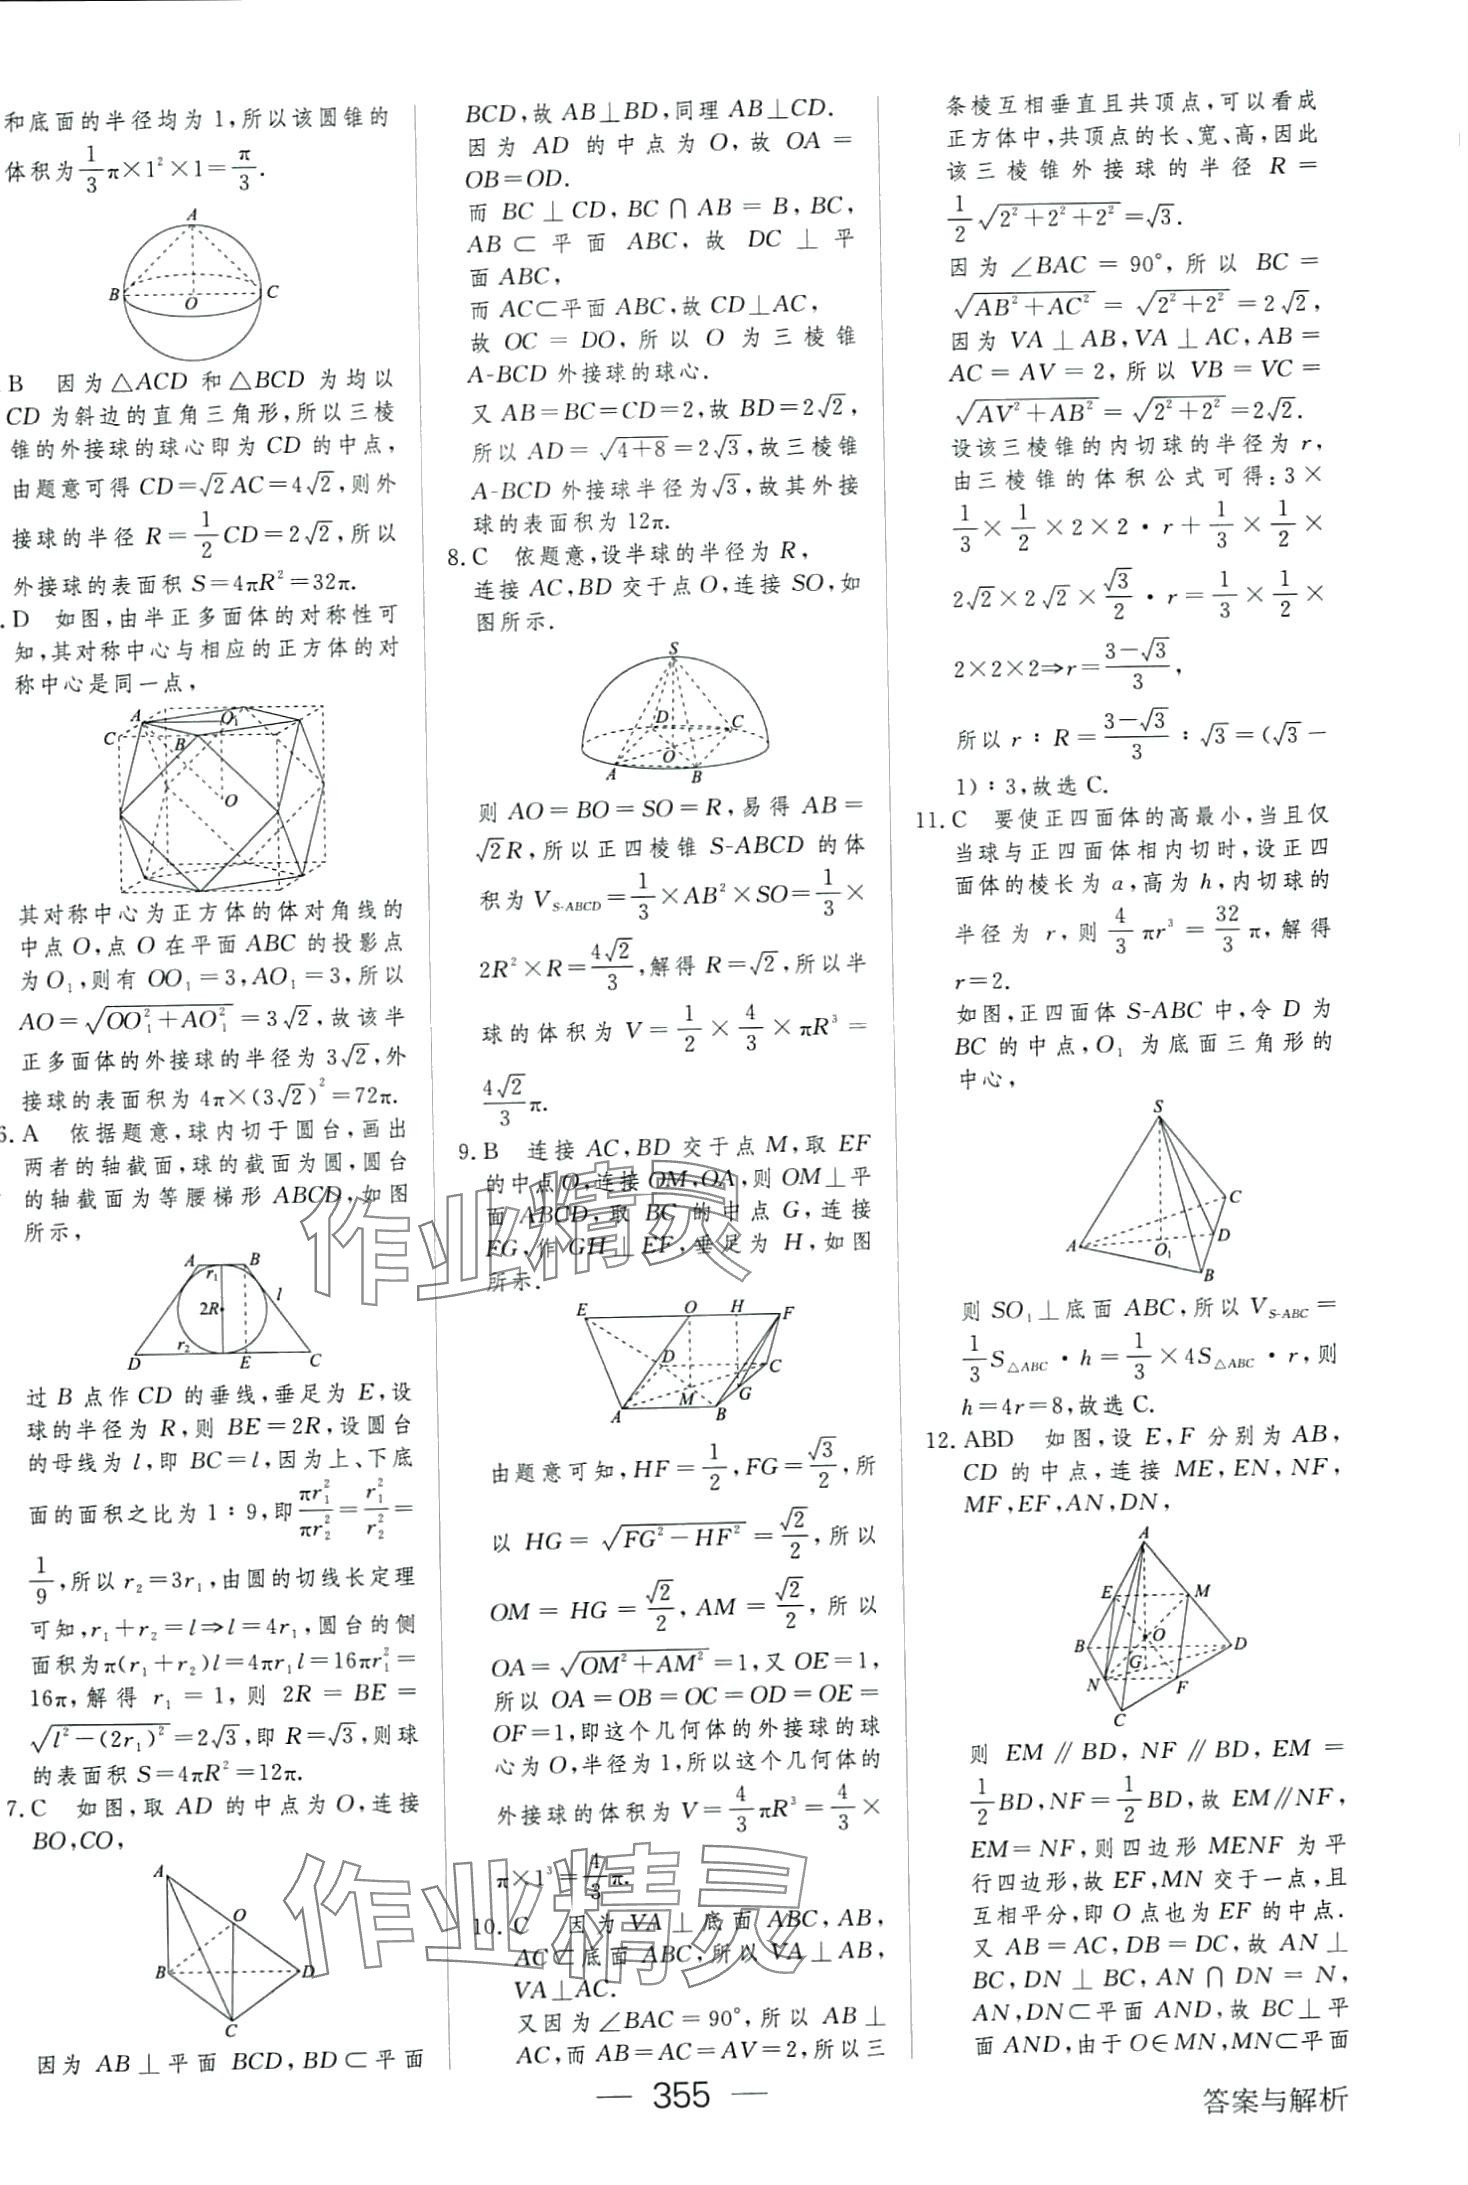 和底面的半径均为1,所以该圆锥的
体积为\frac{1}{3}π×1²×1=\frac{π}{3}.
A
B
O
C
B 因为△ACD 和△BCD 为均以
CD为斜边的直角三角形,所以三棱
锥的外接球的球心即为 CD 的中点,
由题意可得CD=√2AC=4√2,则外
接球的半径 R=\frac{1}{2}CD=2√2,所以
外接球的表面积 S=4πR²=32π.
D 如图,由半正多面体的对称性可
知,其对称中心与相应的正方体的对
称中心是同一点,
A
O₁
C
B
O
其对称中心为正方体的体对角线的
中点 O,点 O 在平面 ABC 的投影点
为O₁,则有 OO₁=3,AO₁=3,所以
AO=√(OO₁²+AO₁²)=3√2,故该半
正多面体的外接球的半径为3√2,外
接球的表面积为4π×(3√2)²=72π.
6. A 依据题意,球内切于圆台,画出
两者的轴截面,球的截面为圆,圆台
的轴截面为等腰梯形 ABCD,如图
所示,
A r₁ B
2R l
r₂
D E C
过 B 点作CD 的垂线,垂足为 E,设
球的半径为 R,则 BE=2R,设圆台
的母线为l,即 BC=l,因为上、下底
面的面积之比为 1∶9,即\frac{πr₁²}{πr₂²}=\frac{r₁²}{r₂²}=
\frac{1}{9},所以r₂=3r₁,由圆的切线长定理
可知,r₁+r₂=l⇒l=4r₁,圆台的侧
面积为π(r₁+r₂)l=4πr₁l=16πr₁²=
16π,解得 r₁=1,则 2R=BE=
√(l²-(2r₁)²)=2√3,即 R=√3,则球
的表面积 S=4πR²=12π.
7. C 如图,取 AD 的中点为 O,连接
BO,CO,
A
O
B D
C
因为 AB⊥平面 BCD,BD⊂平面
BCD,故 AB⊥BD,同理 AB⊥CD.
因为 AD 的中点为 O,故 OA=
OB=OD.
而 BC⊥CD,BC∩AB=B,BC,
AB⊂平面 ABC,故 DC⊥平
面 ABC,
而 AC⊂平面ABC,故CD⊥AC,
故 OC=DO,所以 O 为三棱锥
A-BCD 外接球的球心.
又 AB=BC=CD=2,故 BD=2√2,
所以 AD=√(4+8)=2√3,故三棱锥
A-BCD 外接球半径为√3,故其外接
球的表面积为 12π.
8. C 依题意,设半球的半径为 R,
连接 AC,BD 交于点O,连接 SO,如
图所示.
S
D C
O
A B
则 AO=BO=SO=R,易得 AB=
√2R,所以正四棱锥 S-ABCD 的体
积为 V_{S-ABCD}=\frac{1}{3}×AB²×SO=\frac{1}{3}×
2R²×R=\frac{4√2}{3},解得 R=√2,所以半
球的体积为 V=\frac{1}{2}×\frac{4}{3}×πR³=
\frac{4√2}{3}π.
9. B 连接 AC,BD 交于点 M,取 EF
的中点O,连接OM,OA,则 OM⊥平
面 ABCD,取 BC 的中点 G,连接
FG,作 GH⊥EF,垂足为 H,如图
所示.
E O H F
D C
M G
A B
由题意可知,HF=\frac{1}{2},FG=\frac{√3}{2},所
以 HG=√(FG²-HF²)=\frac{√2}{2},所以
OM=HG=\frac{√2}{2},AM=\frac{√2}{2},所以
OA=√(OM²+AM²)=1,又OE=1,
所以 OA=OB=OC=OD=OE=
OF=1,即这个几何体的外接球的球
心为O,半径为1,所以这个几何体的
外接球的体积为 V=\frac{4}{3}πR³=\frac{4}{3}×
π×1³=\frac{4}{3}π.
10. C 因为 VA⊥底面 ABC,AB,
AC⊂底面 ABC,所以 VA⊥AB,
VA⊥AC.
又因为∠BAC=90°,所以 AB⊥
AC,而 AB=AC=AV=2,所以三
条棱互相垂直且共顶点,可以看成
正方体中,共顶点的长、宽、高,因此
该三棱锥外接球的半径 R=
\frac{1}{2}√(2²+2²+2²)=√3.
因为∠BAC=90°,所以 BC=
√(AB²+AC²)=√(2²+2²)=2√2,
因为 VA⊥AB,VA⊥AC,AB=
AC=AV=2,所以 VB=VC=
√(AV²+AB²)=√(2²+2²)=2√2.
设该三棱锥的内切球的半径为 r,
由三棱锥的体积公式可得:3×
\frac{1}{3}×\frac{1}{2}×2×2·r+\frac{1}{3}×\frac{1}{2}×
2√2×2√2×\frac{√3}{2}·r=\frac{1}{3}×\frac{1}{2}×
2×2×2⇒r=\frac{3-√3}{3},
所以 r∶R=\frac{3-√3}{3}∶√3=(√3-
1)∶3,故选 C.
11. C 要使正四面体的高最小,当且仅
当球与正四面体相内切时,设正四
面体的棱长为 a,高为 h,内切球的
半径为 r,则\frac{4}{3}πr³=\frac{32}{3}π,解得
r=2.
如图,正四面体 S-ABC 中,令 D 为
BC 的中点,O₁ 为底面三角形的
中心,
S
C
A O₁ D
B
则 SO₁⊥底面 ABC,所以 V_{S-ABC}=
\frac{1}{3}S_{△ABC}·h=\frac{1}{3}×4S_{△ABC}·r,则
h=4r=8,故选C.
12. ABD 如图,设 E,F 分别为 AB,
CD 的中点,连接 ME,EN,NF,
MF,EF,AN,DN,
A
E M
B O D
G
N F
C
则 EM∥BD,NF∥BD,EM=
\frac{1}{2}BD,NF=\frac{1}{2}BD,故 EM∥NF,
EM=NF,则四边形 MENF 为平
行四边形,故 EF,MN 交于一点,且
互相平分,即 O 点也为 EF 的中点.
又 AB=AC,DB=DC,故 AN⊥
BC,DN⊥BC,AN∩DN=N,
AN,DN⊂平面 AND,故 BC⊥平
面 AND,由于 O∈MN,MN⊂平面
作业精灵
作业精灵
— 355 —
答案与解析